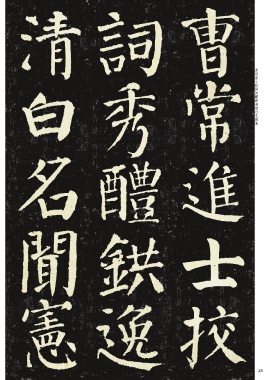 曹常進士挍
詞秀醴鉷逸
清白名聞憲